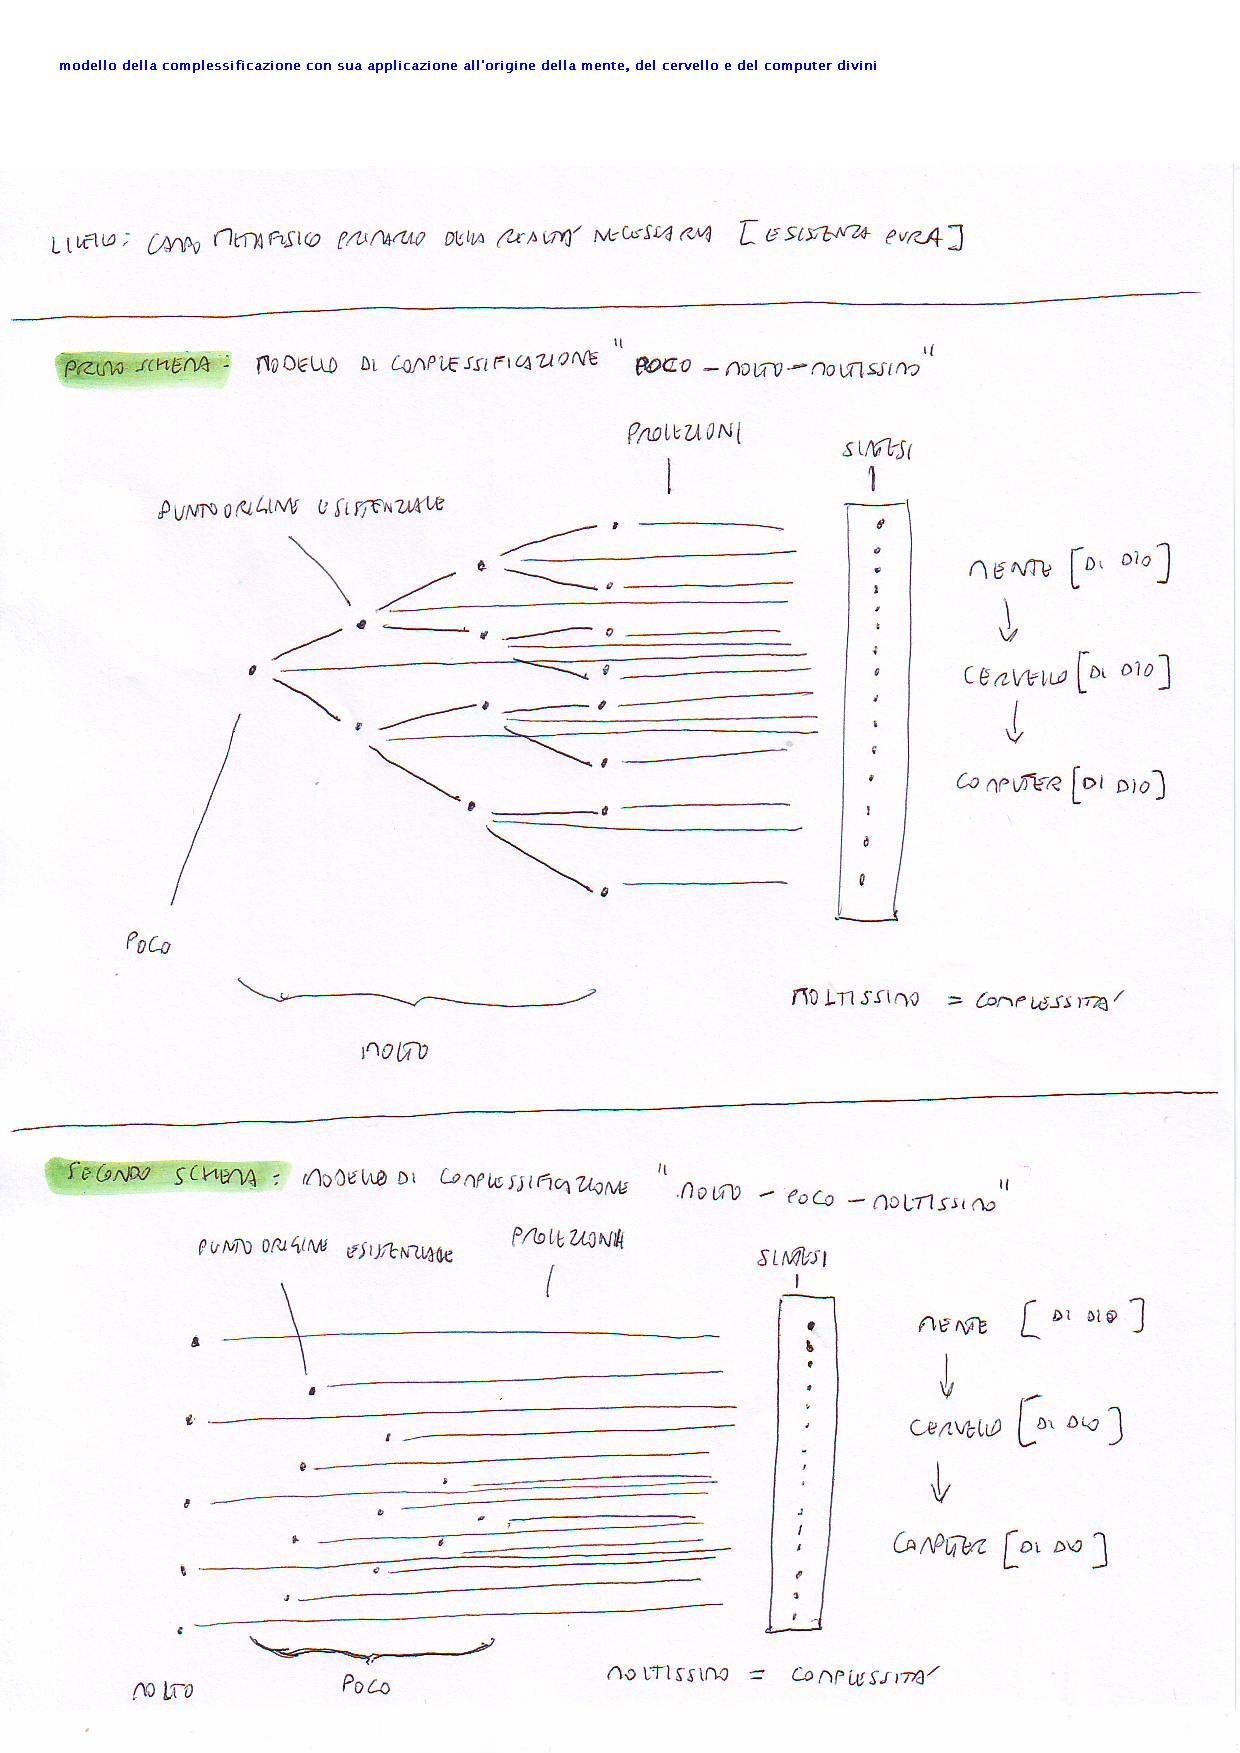 modello della complessificazione con sua applicazione all'origine della mente, del cervello e del computer divini
LIVELLO: CAMPO METAFISICO PRIMARIO DELLA REALTA' NECESSARIA [ESISTENZA PURA]
PRIMO SCHEMA: MODELLO DI COMPLESSIFICAZIONE "POCO - MOLTO - MOLTISSIMO"
PROIEZIONI
SINTESI
PUNTO ORIGINE ESISTENZIALE
MENTE [DI DIO]
CERVELLO [DI DIO]
COMPUTER [DI DIO]
POCO
MOLTISSIMO = COMPLESSITA'
MOLTO
SECONDO SCHEMA: MODELLO DI COMPLESSIFICAZIONE "MOLTO - POCO - MOLTISSIMO"
PUNTO ORIGINE ESISTENZIALE
PROIEZIONI
SINTESI
MENTE [DI DIO]
CERVELLO [DI DIO]
COMPUTER [DI DIO]
MOLTO
POCO
MOLTISSIMO = COMPLESSITA'